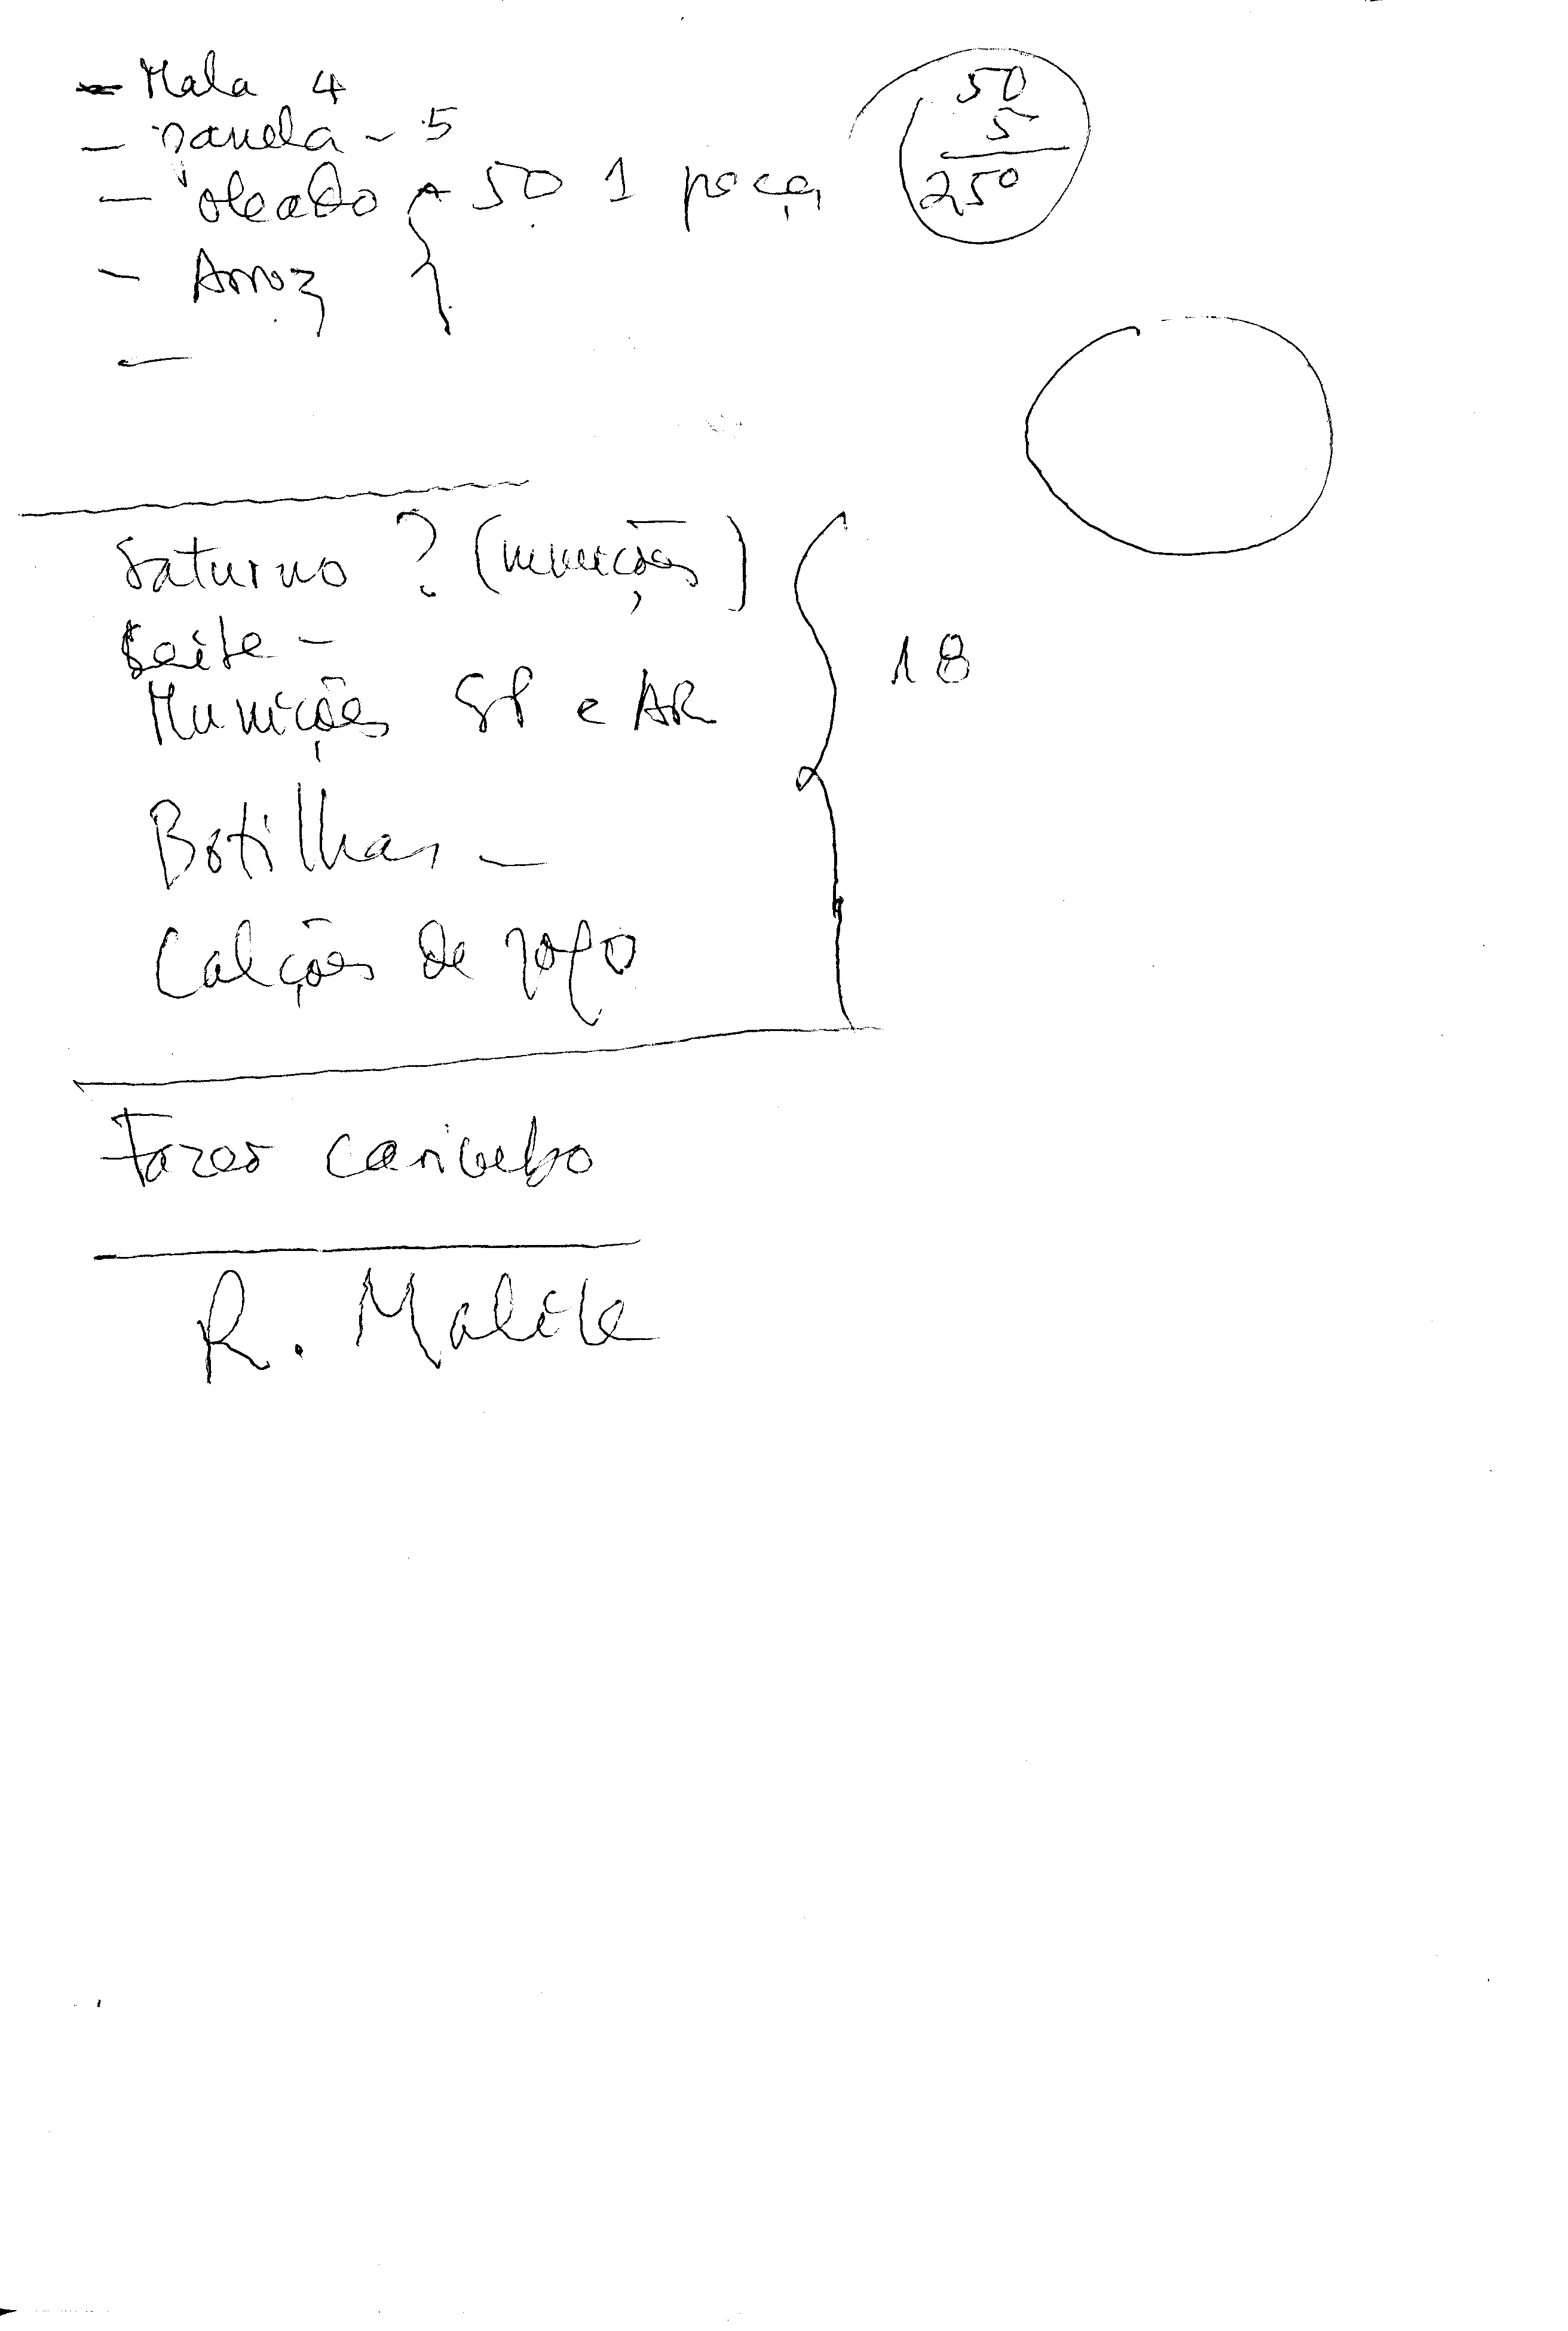 - Mala 4
- panela - 5
- oleado - 50 1 peça
50
5
250
- Arroz
-
Saturno ? (munições)
Leite -
Munições SP e AR
18
Botilhas -
Calções de jogo
Fazer carimbo
R. Malik